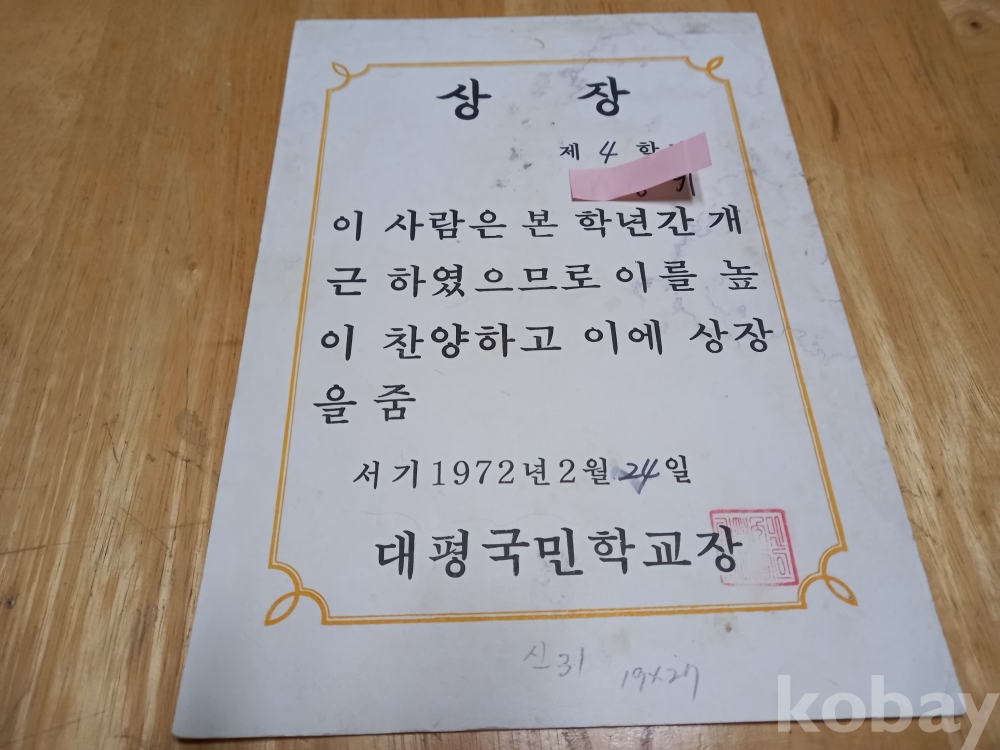 상 장
제 4 학
이 사람은 본 학년간 개
근 하였으므로 이를 높
이 찬양하고 이에 상장
을 줌
서기 1972년 2월 24일
대평국민학교장
신31 19x27
kobay